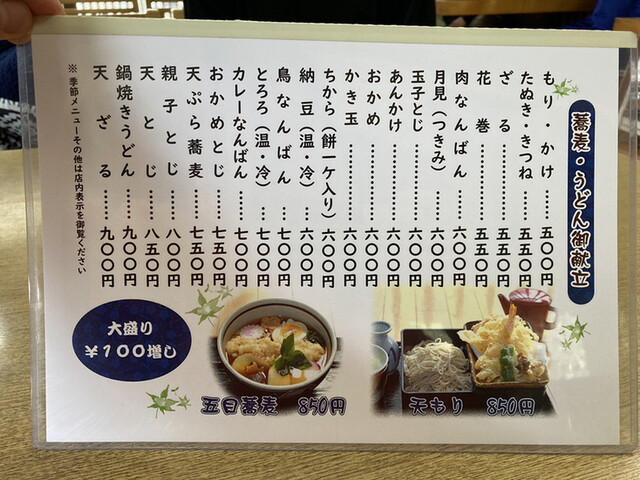 蕎麦・うどん御献立
もり・かけ……五〇〇円
たぬき・きつね……五五〇円
ざる……五五〇円
花巻……五五〇円
肉なんばん……六〇〇円
月見(つきみ)……六〇〇円
玉子とじ……六〇〇円
あんかけ……六〇〇円
おかめ……六〇〇円
かき玉……六〇〇円
ちから(餅一ケ入り)六〇〇円
納豆(温・冷)……六〇〇円
鳥なんばん……六〇〇円
とろろ(温・冷)……七〇〇円
カレーなんばん……七〇〇円
おかめとじ……七五〇円
天ぷら蕎麦……七五〇円
親子とじ……八〇〇円
天とじ……八五〇円
鍋焼きうどん……九〇〇円
天ざる……九〇〇円
※季節メニューその他は店内表示を御覧ください
大盛り
¥100増し
五目蕎麦 850円
天もり 850円